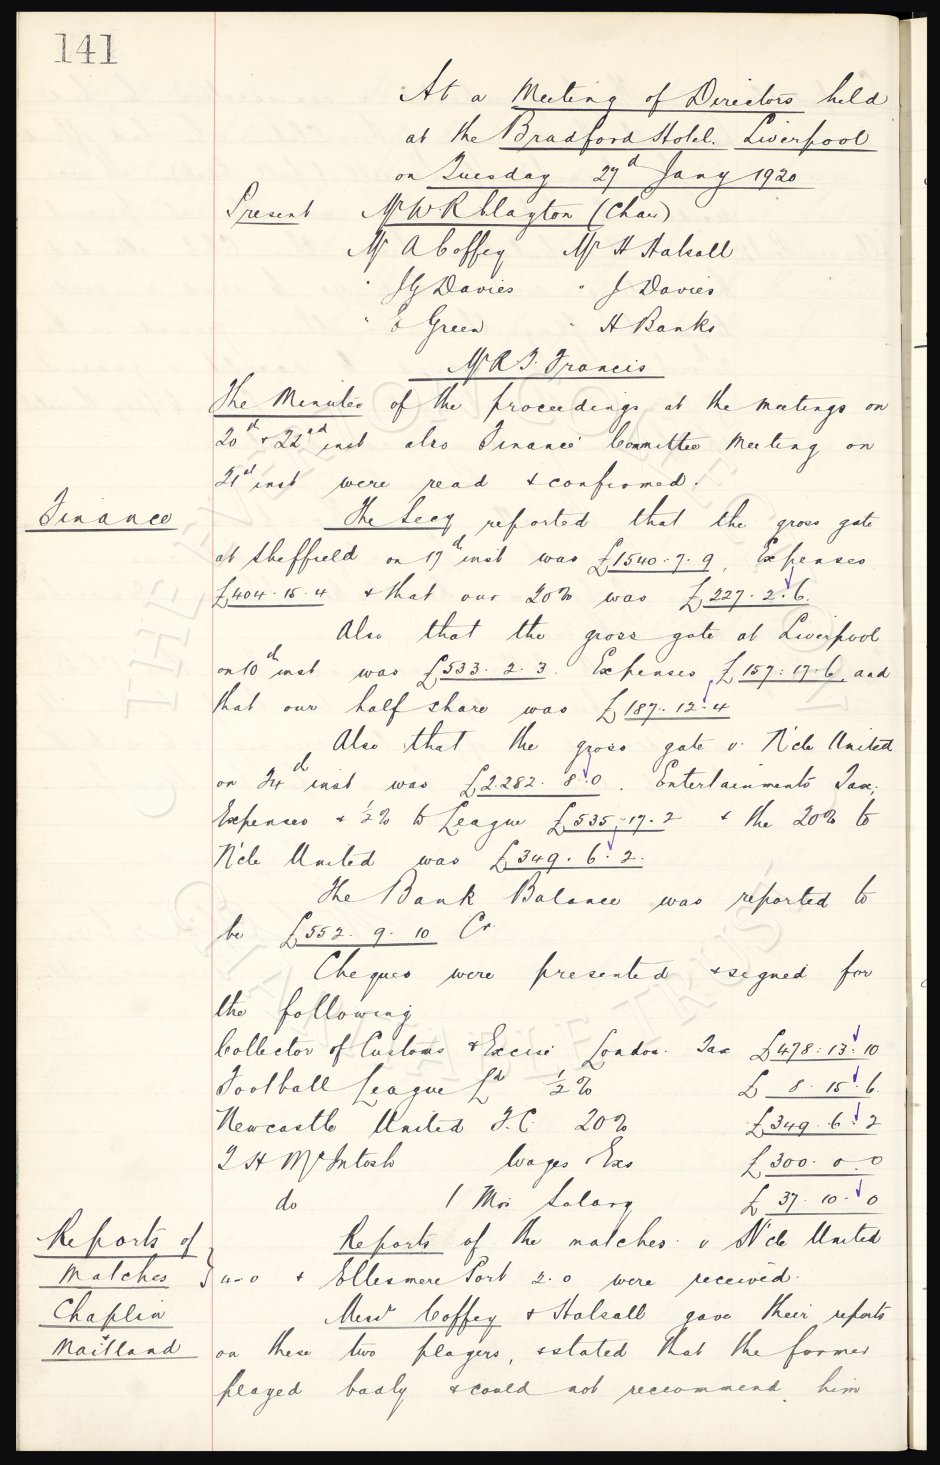 141
At a Meeting of Directors held
at the Bradford Hotel. Liverpool
on Tuesday 27th Jany 1920
Present Mr W R Clayton (Chair)
Mr A Coffey Mr H Halsall
" J G Davies " J Davies
" E Green " H Banks
Mr R. T. Francis
The Minutes of the proceedings at the meetings on
20th & 22nd inst also Finance Committee Meeting on
21st inst were read & confirmed.
Finance
The Secy reported that the gross gate
at Sheffield on 17th inst was £1540. 7. 9, Expenses
£404. 15. 4 & that our 20% was £227. 2. 6.
Also that the gross gate at Liverpool
on 10th inst was £533. 2. 3. Expenses £157: 17. 6, and
that our half share was £187. 12. 4
Also that the gross gate v. N'cle United
on 24th inst was £2.282. 8. 0. Entertainments Tax,
Expenses & ½% to League £535. 17. 2 & the 20% to
N'cle United was £349. 6. 2.
The Bank Balance was reported to
be £552. 9. 10 Cr
Cheques were presented & signed for
the following
Collector of Customs & Excise London. Tax £478: 13: 10
Football League Ld ½% £ 8. 15. 6.
Newcastle United F.C. 20% £349. 6. 2
T H McIntosh Wages Exs £300. 0. 0
do 1 Mos Salary £ 37. 10. 0
Reports of
Matches
Reports of the matches v N'cle United
4-0 & Ellesmere Port 2. 0 were received.
Chaplin
&
Maitland
Messrs Coffey & Halsall gave their reports
on these two players, & stated that the former
played badly & could not reccommend him